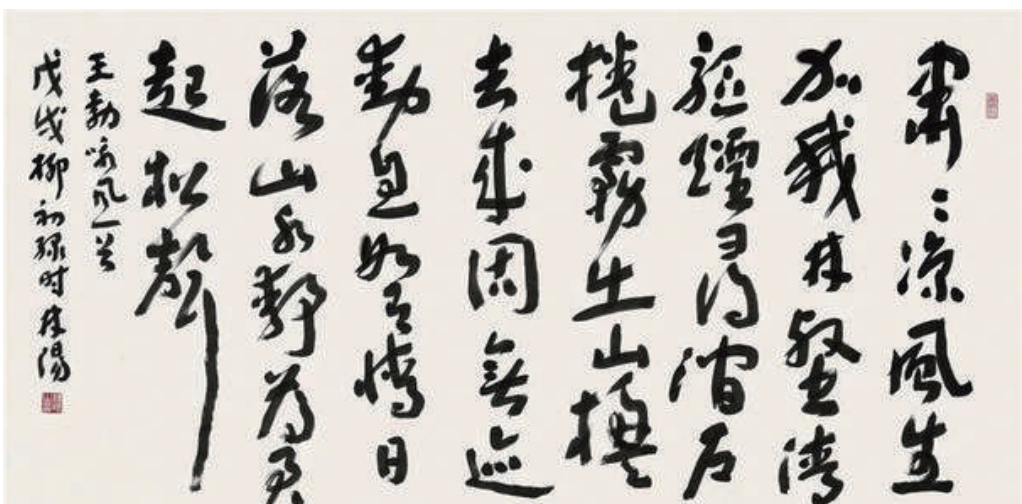 肅〻涼風生
加我林壑清
驅煙尋澗石
捲霧出山楹
去來固無迹
動息如有情日
落山水靜為君
起松聲
王勃咏風一首
戊戌柳初绿时林陽